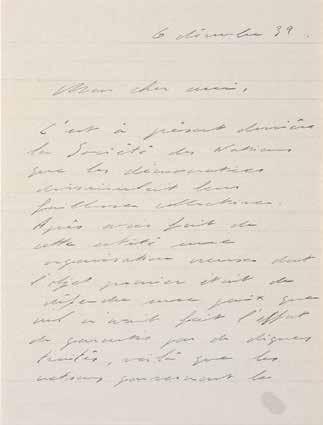 6 décembre 39.
Mon cher ami,
C'est à présent derrière
la Société des Nations
que les démocraties
dissimulent leurs
faiblesses collectives.
Après avoir fait de
cette entité une
organisation dont
l'objet premier était de
défendre une paix que
nul n'avait fait l'effort
de garantir par de dignes
traités, voilà que les
nations gouvernant le